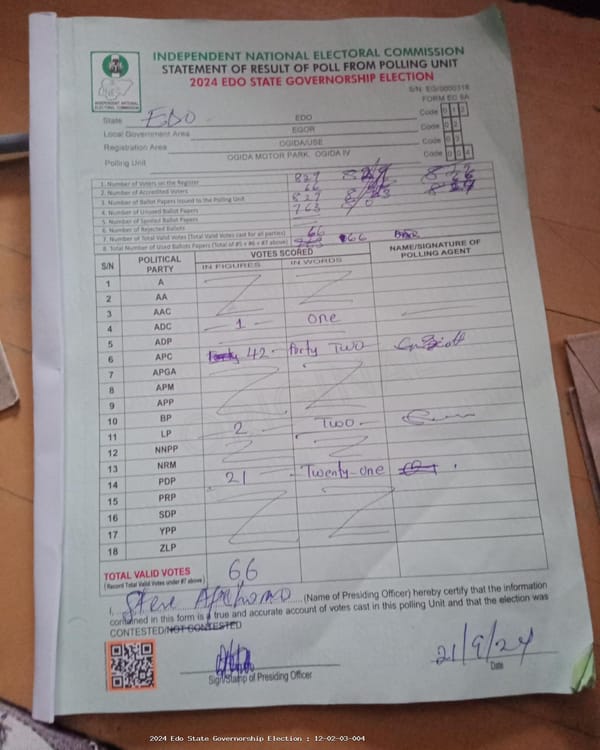 INDEPENDENT NATIONAL ELECTORAL COMMISSION
STATEMENT OF RESULT OF POLL FROM POLLING UNIT
2024 EDO STATE GOVERNORSHIP ELECTION
INDEPENDENT NATIONAL
ELECTORAL COMMISSION
S/N: EG/0000318
FORM EC 8A
State EDO EDO Code 1 2
Local Government Area EGOR Code
Registration Area OGIDA/USE Code 0
Polling Unit OGIDA MOTOR PARK, OGIDA IV Code 0 0 4
1. Number of Voters on the Register 827
2. Number of Accredited Voters 66
3. Number of Ballot Papers Issued to the Polling Unit 827
4. Number of Unused Ballot Papers 763
5. Number of Spoiled Ballot Papers
6. Number of Rejected Ballots
7. Number of Total Valid Votes (Total Valid Votes cast for all parties) 66
8. Total Number of Used Ballots Papers (Total of #5 + #6 + #7 above) 66
S/N POLITICAL PARTY VOTES SCORED NAME/SIGNATURE OF POLLING AGENT
IN FIGURES IN WORDS
1 A
2 AA
3 AAC
4 ADC 1 One
5 ADP
6 APC 42 Forty Two
7 APGA
8 APM
9 APP
10 BP
11 LP 2 Two
12 NNPP
13 NRM
14 PDP 21 Twenty-one
15 PRP
16 SDP
17 YPP
18 ZLP
TOTAL VALID VOTES 66
(Record Total Valid Votes under #7 above)
I, Steve (Name of Presiding Officer) hereby certify that the information
contained in this form is a true and accurate account of votes cast in this polling Unit and that the election was
CONTESTED/NOT CONTESTED
21/9/24
Sign/Stamp of Presiding Officer Date
2024 Edo State Governorship Election : 12-02-03-004